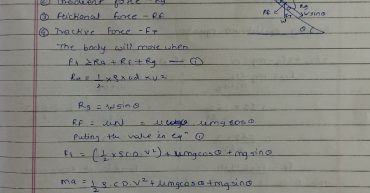 ② Gradient force - Rg
③ Frictional force - RF
④ Tractive Force - FT
The body will move when
Ft ≥ Ra + Rf + Rg — ①
Ra = 1/2 × ρ × cd × v²
Rg = wsinθ
RF = μN = μmgcosθ
Puting the value in eqⁿ ①
Ft = (1/2 × ρ C D. V²) + μmgcosθ + mg sinθ
ma = 1/2 ρ. C D. V² + μmgcosθ + mg sinθ
RF
Rg
wsinθ
θ